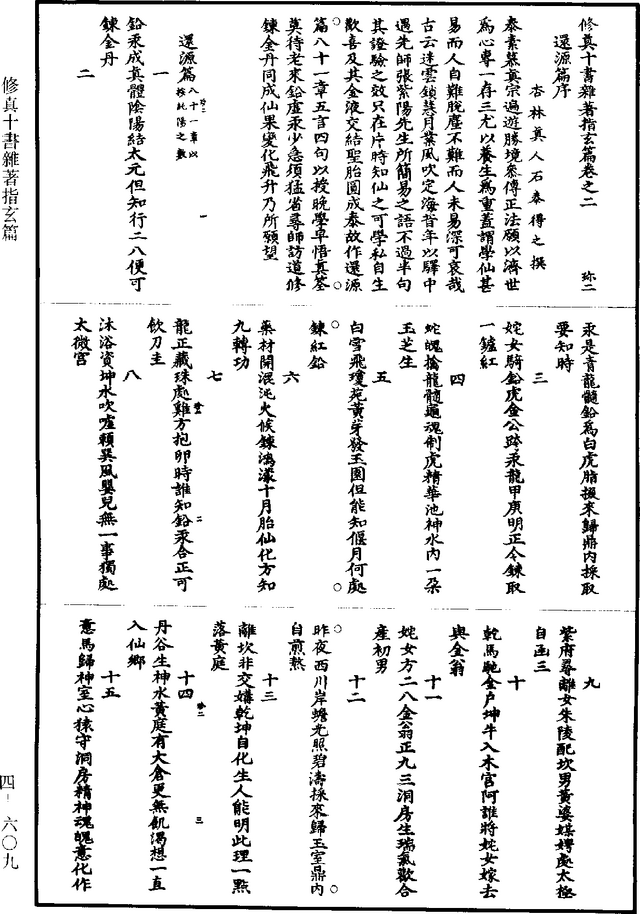 修真十書雜著指玄篇卷之二　珎二
還源篇序
杏林真人石泰得之撰
泰素慕真宗遍遊勝境參傳正法願以濟世
為心專一存三尤以養生為重蓋謂學仙甚
易而人自難脫塵不難而人未易深可哀哉
古云迷雲鎖慧月業風吹定海昔年以驛中
遇先師張紫陽先生所簡易之語不過半句
其證驗之效只在片時知仙之可學私自生
歡喜及其金液交結聖胎圓成泰故作還源
篇八十一章五言四句以授晚學早悟真筌
莫待老來鉛虛汞少急須猛省尋師訪道修
鍊金丹同成仙果變化飛升乃所願望
還源篇八十一章以按此陽之數
一
鉛汞成真體陰陽結太元但知行二八便可
鍊金丹
二
汞是青龍髓鉛為白虎脂掇來歸鼎內採取
要知時
三
姹女騎鉛虎金公跨汞龍甲庚明正令鍊取
一鑪紅
四
蛇魄擒龍髓龜魂制虎精華池神水內一朵
玉芝生
五
白雪飛瓊苑黃芽發玉園但能知偃月何處
鍊紅鉛
六
藥材開混沌火候鍊鴻濛十月胎仙化方知
九轉功
七
龍正藏珠處雞方抱卵時誰知鉛汞合正可
飲刀圭
八
沐浴資坤水吹噓賴巽風嬰兒無一事獨處
太微宮
九
紫府尋離女朱陵配坎男黃婆媒娉處太極
自函三
十
乾馬馳金戶坤牛入木宮阿誰將姹女嫁去
與金翁
十一
姹女方二八金翁正九三洞房生瑞氣歡合
產初男
十二
昨夜西川岸蟾光照碧濤採來歸玉室鼎內
自煎熬
十三
離坎非交媾乾坤自化生人能明此理一點
落黃庭
十四
丹谷生神水黃庭有大倉更無飢渴想一直
入仙鄉
十五
意馬歸神室心猿守洞房精神魂魄意化作
修真十書雜著指玄篇
四－六〇九